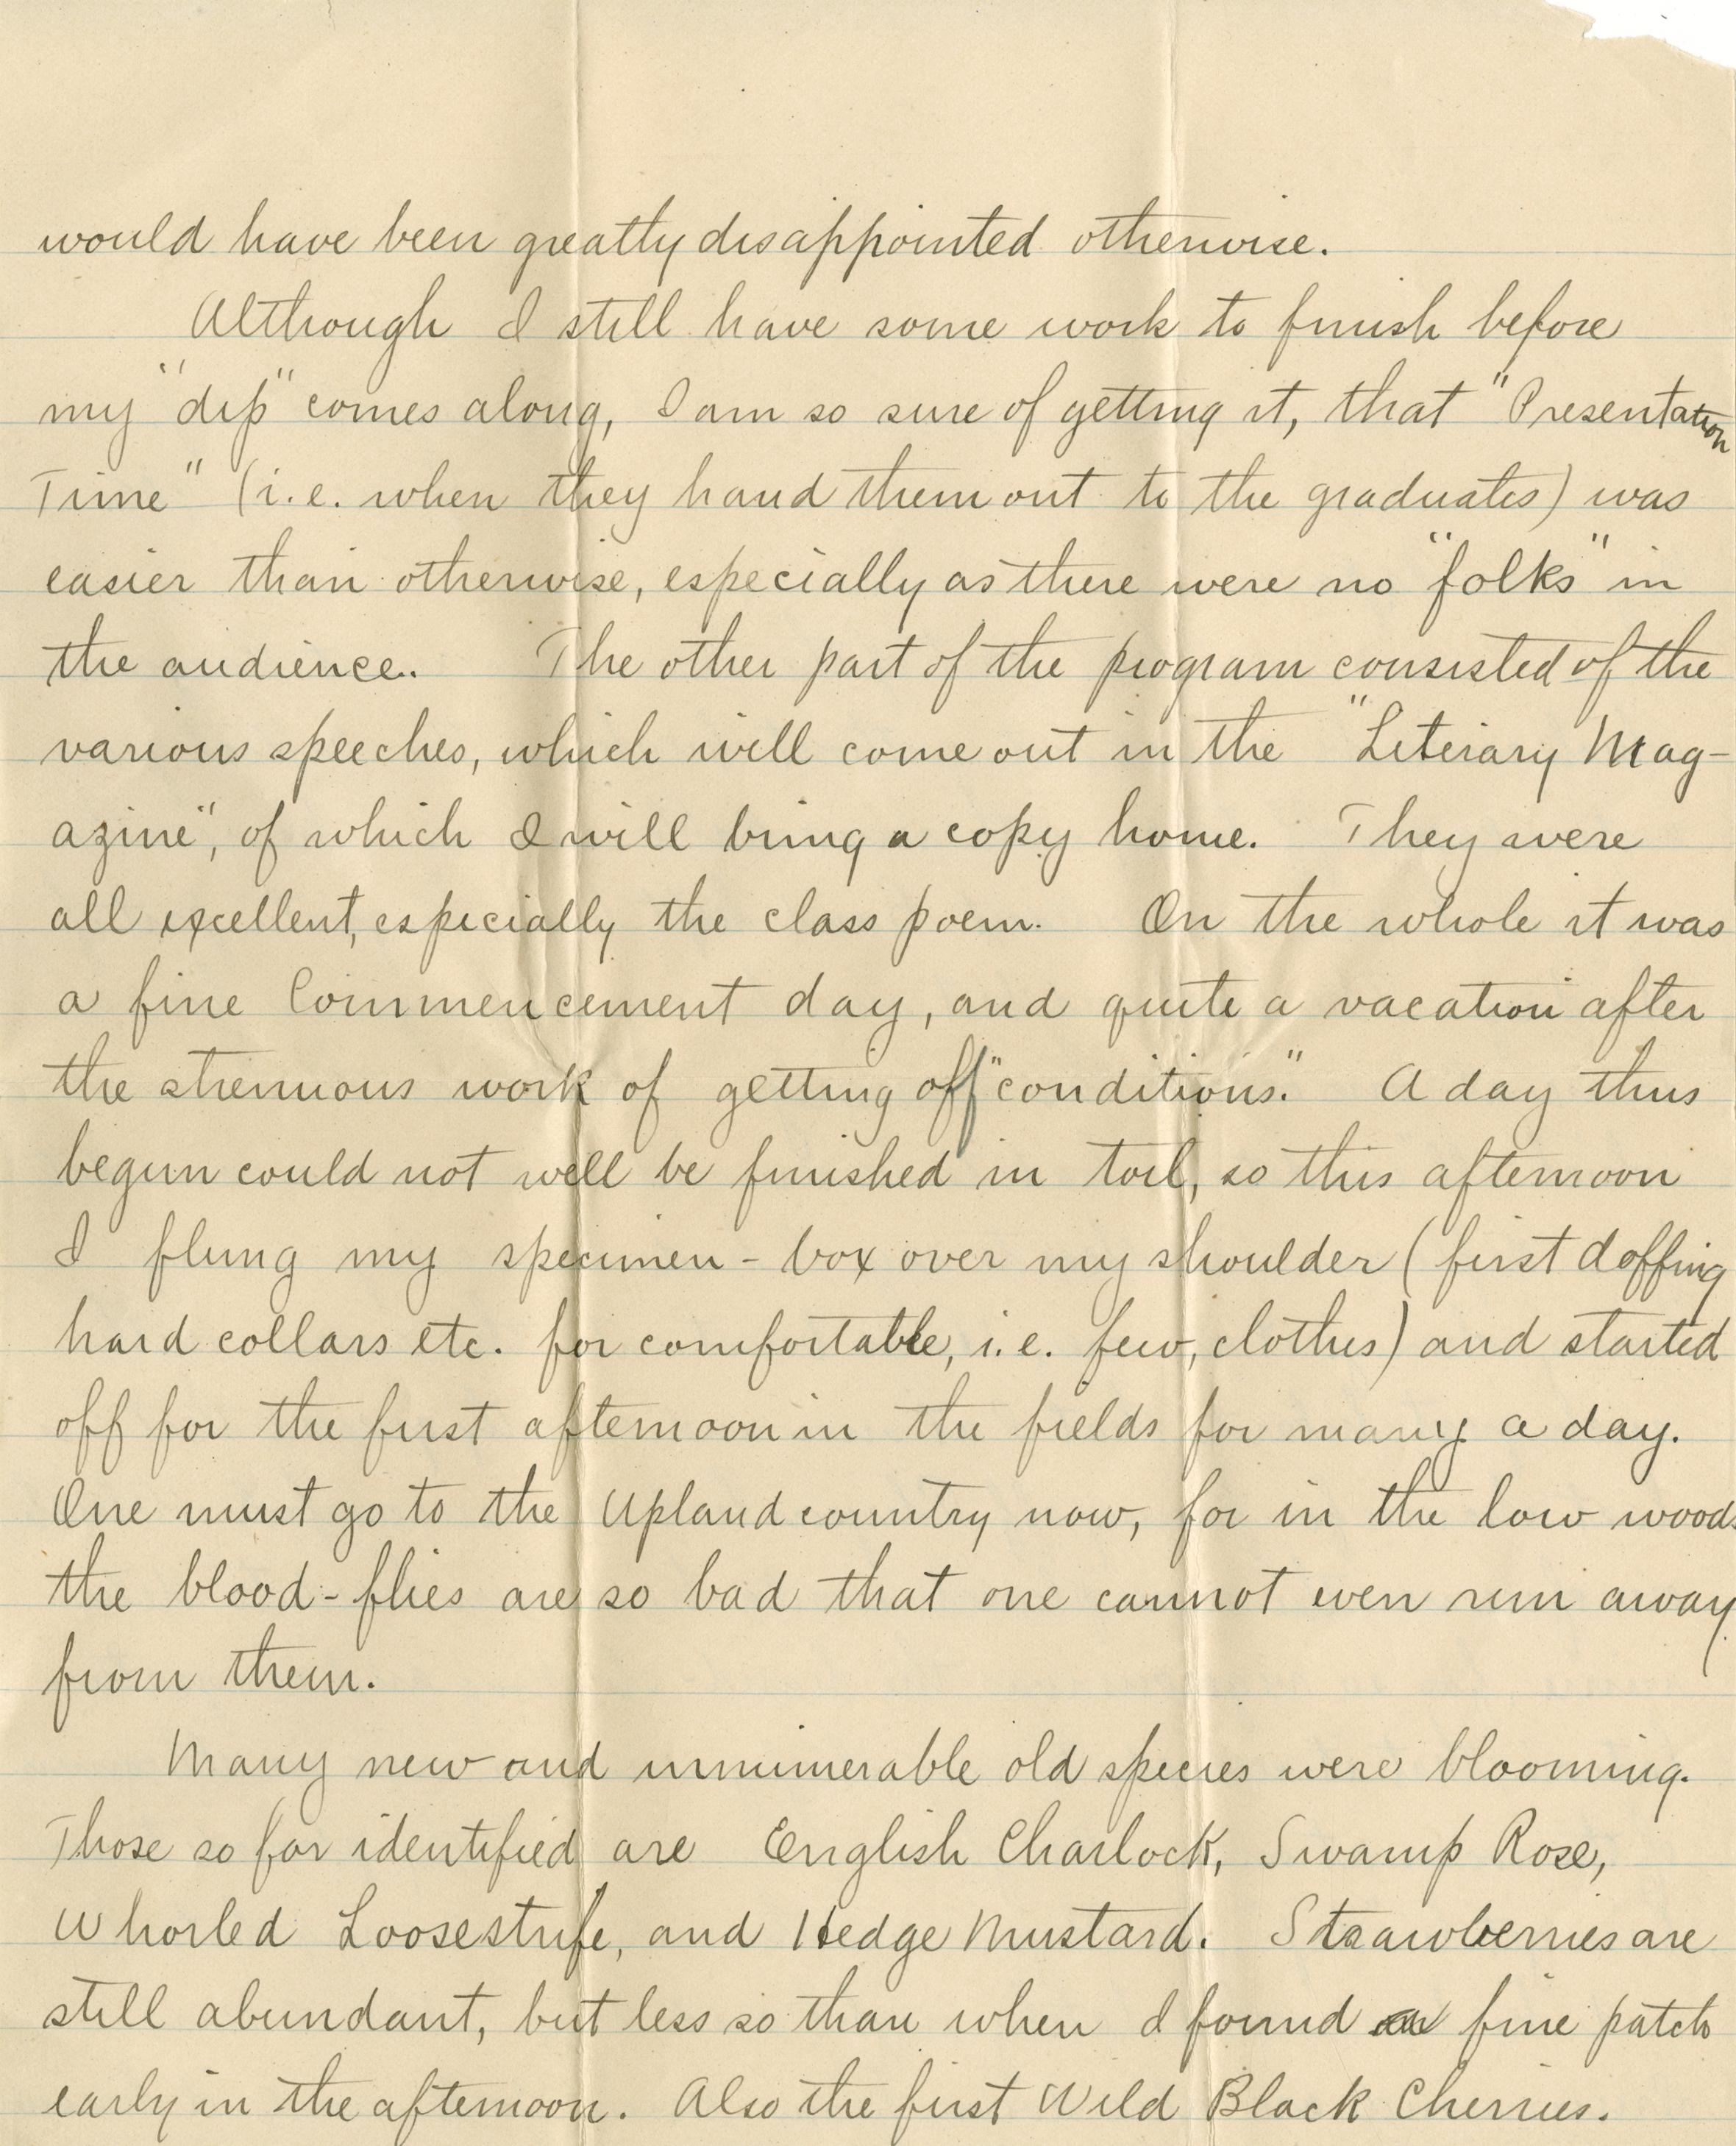 would have been greatly disappointed otherwise.
Although I still have some work to finish before
my "dip" comes along, I am so sure of getting it, that "Presentation
Time" (i.e. when they hand them out to the graduates) was
easier than otherwise, especially as there were no "folks" in
the audience. The other part of the program consisted of the
various speeches, which will come out in the "Literary Mag-
azine", of which I will bring a copy home. They were
all excellent, especially the class poem. On the whole it was
a fine Commencement day, and quite a vacation after
the strenuous work of getting off "conditions." A day thus
begun could not well be finished in toil, so this afternoon
I flung my specimen-box over my shoulder (first doffing
hard collars etc. for comfortable, i.e. few, clothes) and started
off for the first afternoon in the fields for many a day.
One must go to the Upland country now, for in the low woods
the blood-flies are so bad that one cannot even run away
from them.
Many new and innumerable old species were blooming.
Those so far identified are English Charlock, Swamp Rose,
Whorled Loosestrife, and Hedge Mustard. Strawberries are
still abundant, but less so than when I found a fine patch
early in the afternoon. Also the first Wild Black Cherries.